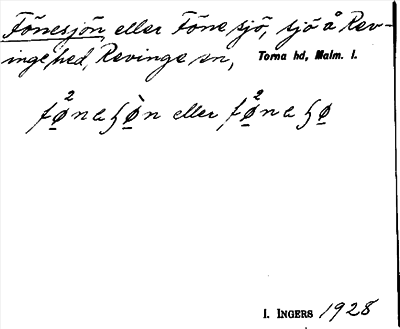 Fönesjön eller Föne sjö, sjö å Rev-
ingehed, Revinge sn, Torna hd, Malm. l.
fø̲²nəʃø̲̀n eller fø̲²nəʃø̲
I. INGERS 1928